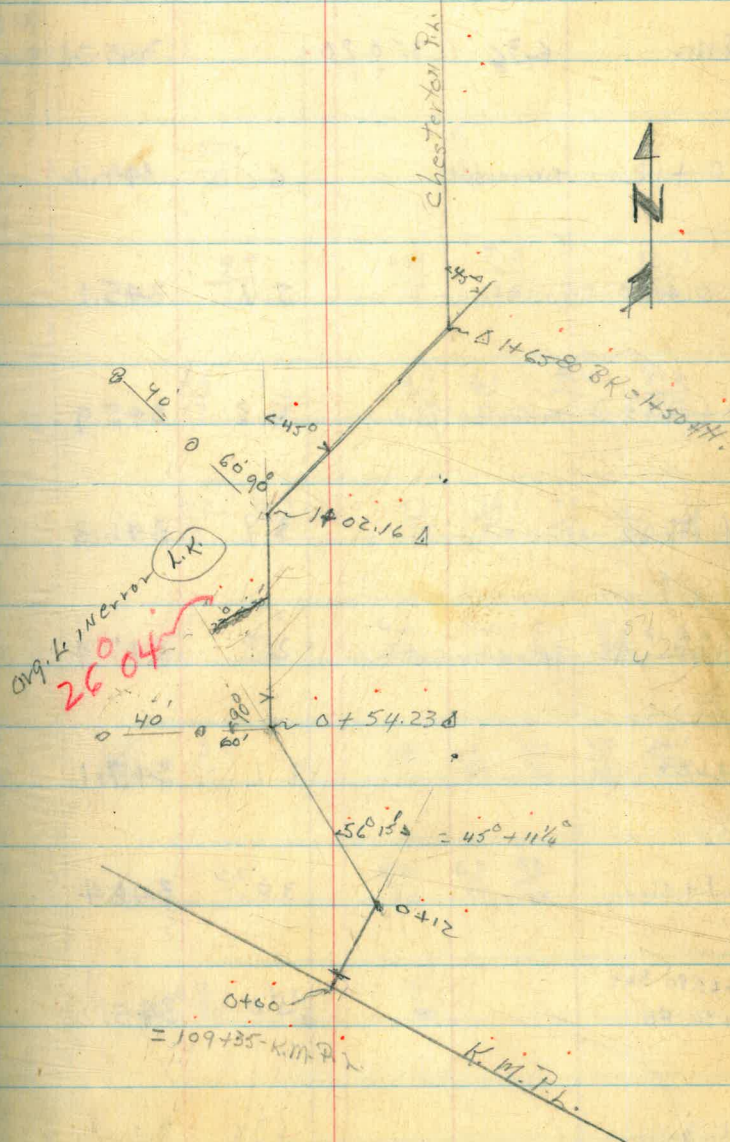 Chesterton P.L.
N
<45°
Δ 1+65.80 BK = 1+50 AH.
8 40'
<45°
60' 90°
1+02.16 Δ
L.K.
Org. L. in error
26° 04'
40'
60' <90°
0+54.23 Δ
<56° 15' = 45° + 11 1/4°
0+12
0+00
= 109+35 - K.M.P.L.
K.M.P.L.